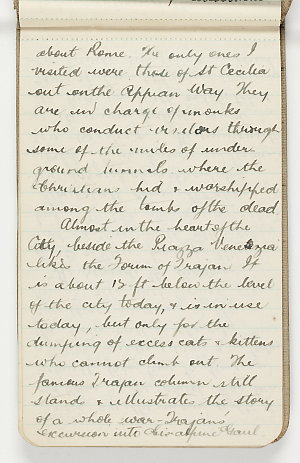 about Rome. The only ones I
visited were those of St Cecilia
out on the Appian Way They
are in charge of monks
who conduct visitors through
some of the miles of under
ground tunnels where the
Christians hid & worshipped
among the tombs of the dead
Almost in the heart of the
City, beside the Piazza Venezia
lies the Forum of Trajan It
is about 15 ft below the level
of the city today, & is in use
today, but only for the
dumping of excess cats & kittens
who cannot climb out. The
famous Trajan column still
stands & illustrates the story
of a whole war - Trajan's
excursion into Cisalpine Gaul